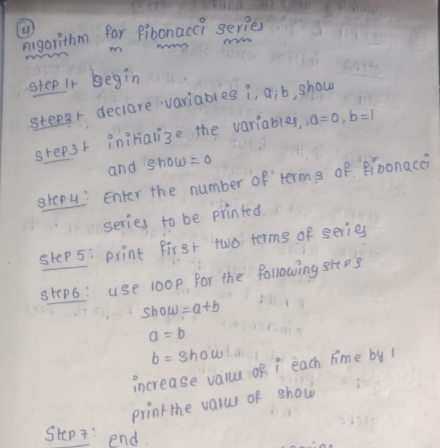 4
Algorithm for fibonacci series
Step 1: begin
Step2: declare variables i, a, b, show
Step3: initialize the variables, a=0, b=1
and show=0
Step4: Enter the number of terms of fibonacci
series to be printed.
Step 5: print first two terms of series
Step6: use loop for the following steps
show=a+b
a=b
b=show
increase value of i each time by 1
print the value of show
Step7: end.